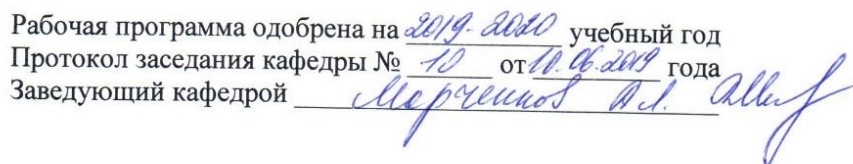 Рабочая программа одобрена на 2019-2020 учебный год
Протокол заседания кафедры № 10 от 10.06.2019 года
Заведующий кафедрой Марченков А.Л.